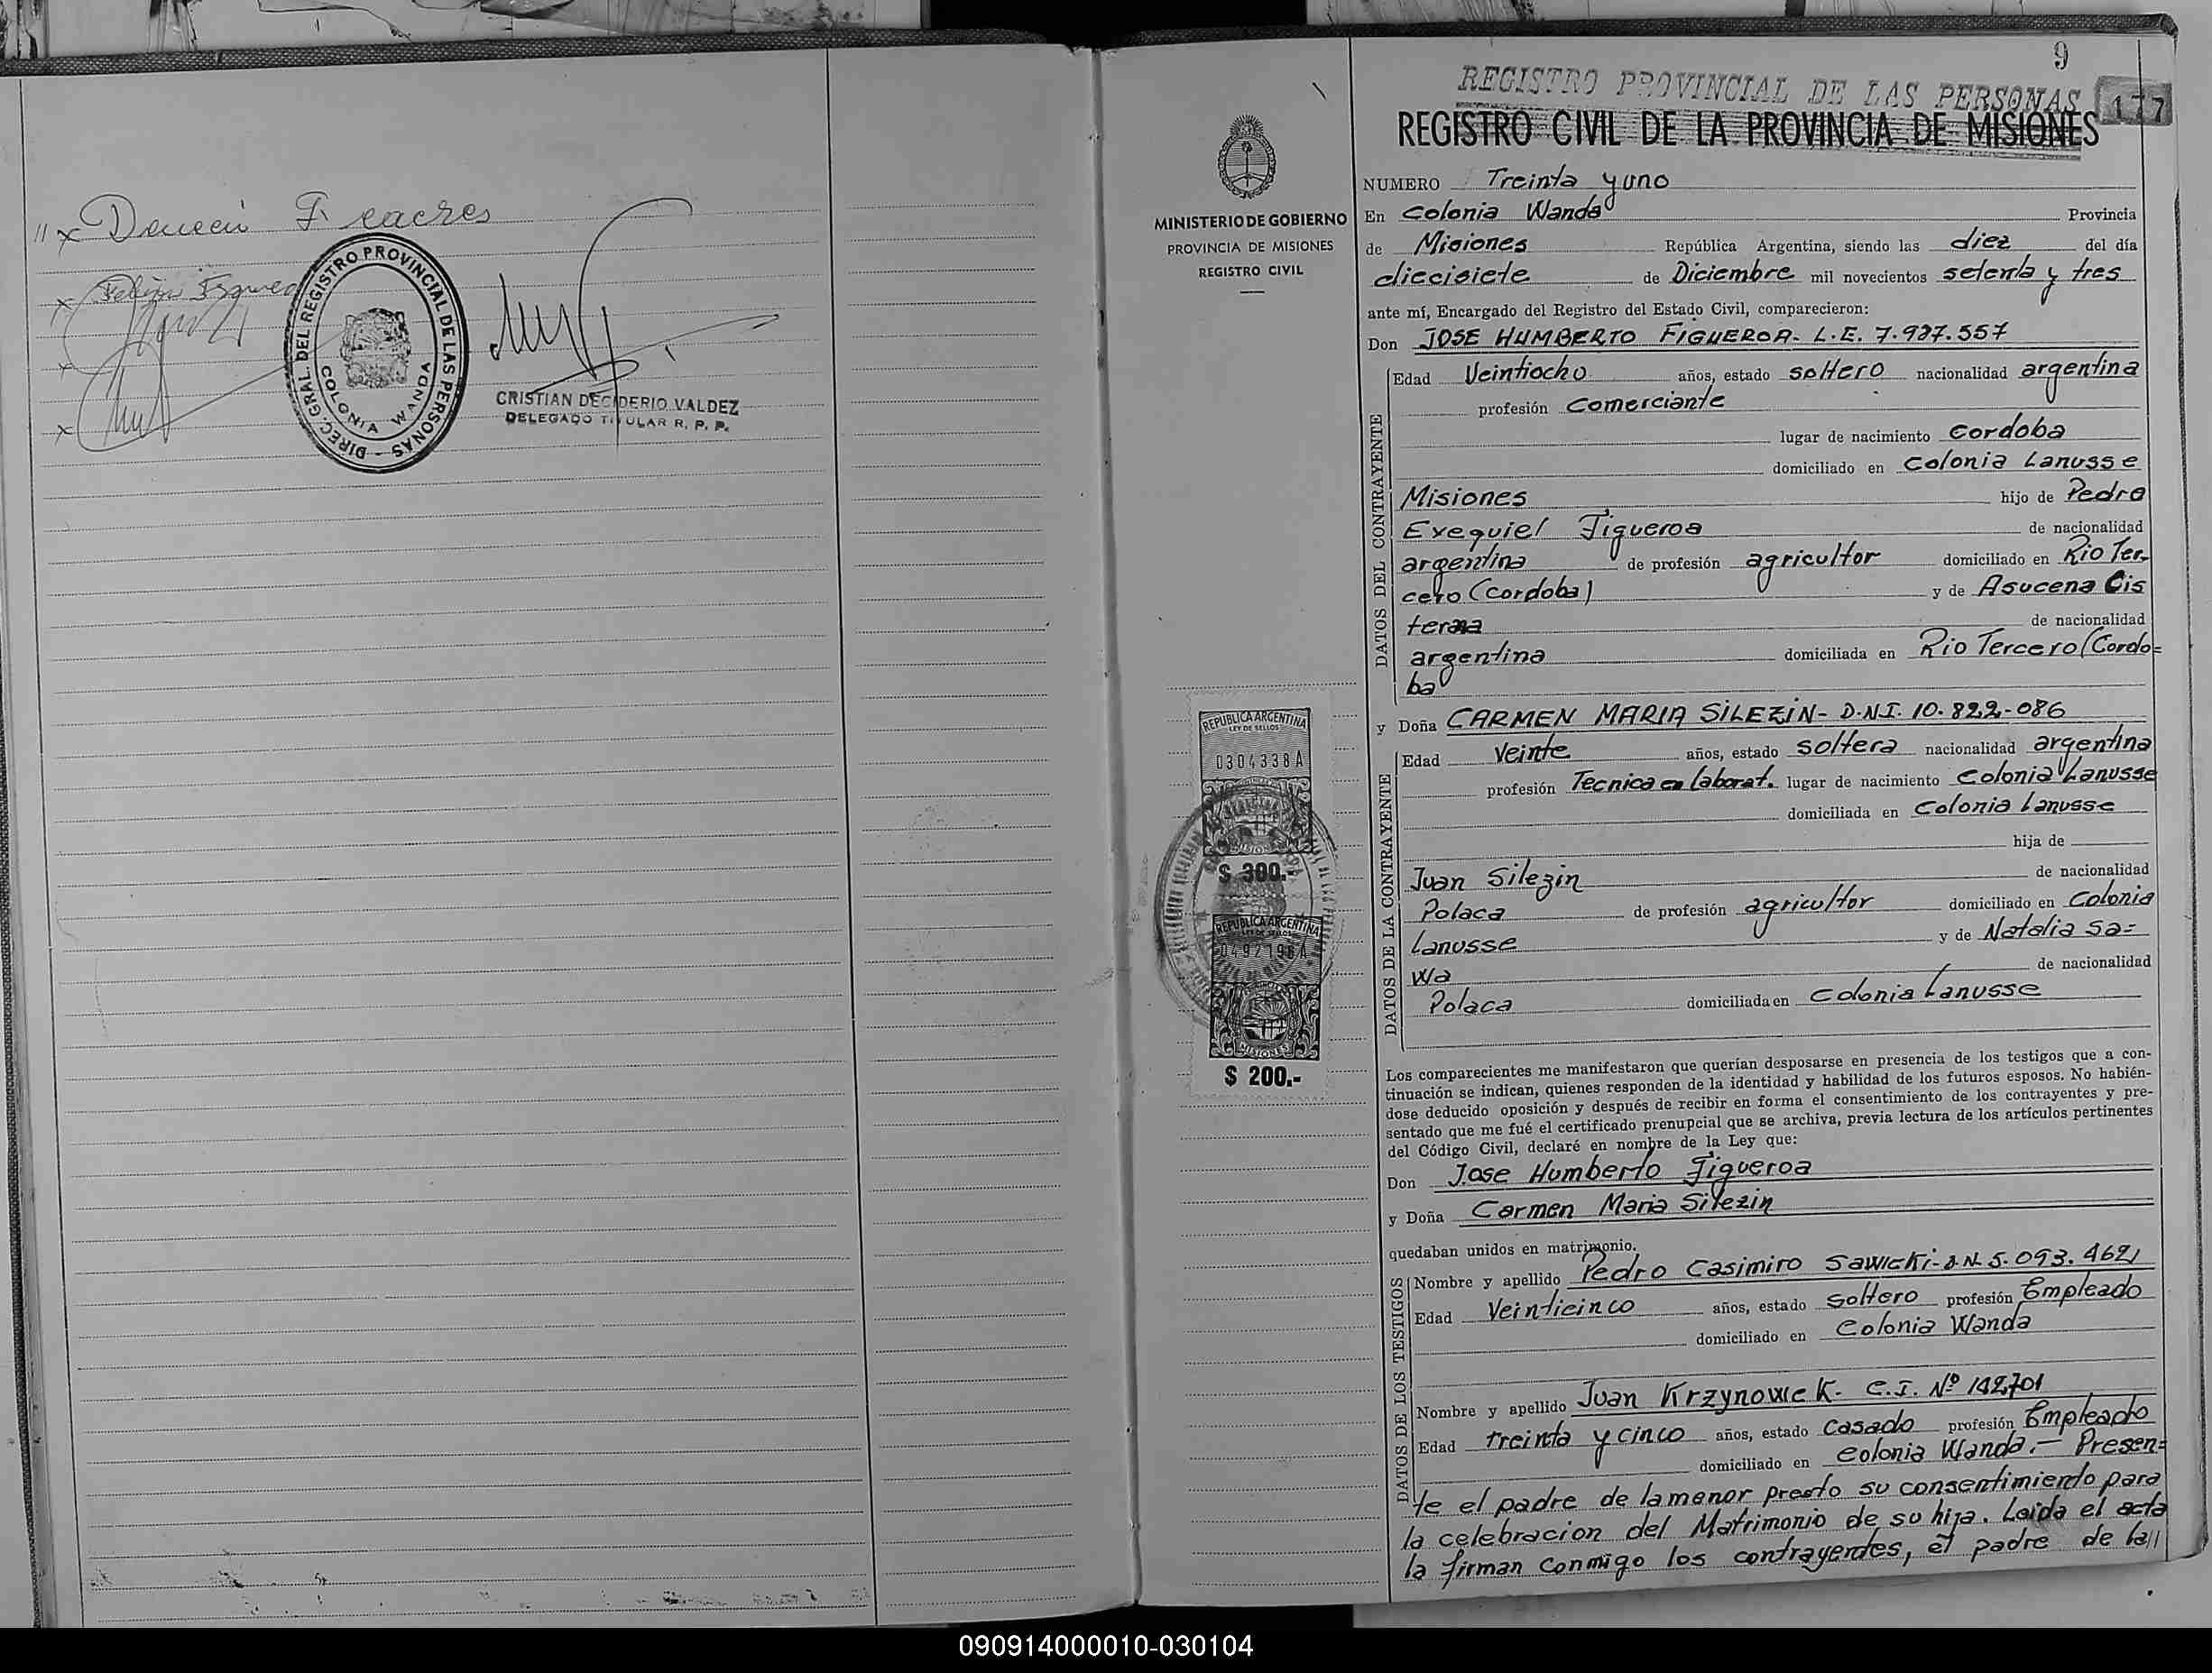 DIREC. GRAL. DEL REGISTRO PROVINCIAL DE LAS PERSONAS -
COLONIA WANDA
CRISTIAN DECIDERIO VALDEZ
DELEGADO TITULAR R. P. P.
9
REGISTRO PROVINCIAL DE LAS PERSONAS
177
REGISTRO CIVIL DE LA PROVINCIA DE MISIONES
MINISTERIO DE GOBIERNO
PROVINCIA DE MISIONES
REGISTRO CIVIL
NUMERO Treinta y uno
En Colonia Wanda Provincia
de Misiones República Argentina, siendo las diez del día
diecisiete de Diciembre mil novecientos setenta y tres
ante mí, Encargado del Registro del Estado Civil, comparecieron:
Don JOSE HUMBERTO FIGUEROA- L.E. 7.987.557
DATOS DEL CONTRAYENTE
Edad Veintiocho años, estado soltero nacionalidad argentina
profesión Comerciante
lugar de nacimiento Cordoba
domiciliado en Colonia Lanusse
Misiones hijo de Pedro
Exequiel Figueroa de nacionalidad
argentina de profesión agricultor domiciliado en Rio Ter-
cero (Cordoba) y de Asucena Cis
terna de nacionalidad
argentina domiciliada en Rio Tercero (Cordo=
ba
y Doña CARMEN MARIA SILEZIN- D.N.I. 10.822-086
DATOS DE LA CONTRAYENTE
Edad Veinte años, estado soltera nacionalidad argentina
profesión Tecnica en laborat. lugar de nacimiento Colonia Lanusse
domiciliada en Colonia Lanusse
hija de
Juan Silezin de nacionalidad
Polaca de profesión agricultor domiciliado en Colonia
Lanusse y de Natalia Sa=
wa de nacionalidad
Polaca domiciliada en Colonia Lanusse
REPUBLICA ARGENTINA
LEY DE SELLOS
0304338A
MISIONES
$ 300.-
REPUBLICA ARGENTINA
LEY DE SELLOS
MISIONES
$ 200.-
Los comparecientes me manifestaron que querían desposarse en presencia de los testigos que a con-
tinuación se indican, quienes responden de la identidad y habilidad de los futuros esposos. No habién-
dose deducido oposición y después de recibir en forma el consentimiento de los contrayentes y pre-
sentado que me fué el certificado prenupcial que se archiva, previa lectura de los artículos pertinentes
del Código Civil, declaré en nombre de la Ley que:
Don Jose Humberto Figueroa
y Doña Carmen Maria Silezin
quedaban unidos en matrimonio.
DATOS DE LOS TESTIGOS
Nombre y apellido Pedro Casimiro Sawicki- 5.093.462
Edad Veinticinco años, estado soltero profesión Empleado
domiciliado en Colonia Wanda
Nombre y apellido Juan Krzynowek- C.I. Nº 142,701
Edad treinta y cinco años, estado Casado profesión Empleado
domiciliado en Colonia Wanda.- Presen=
te el padre de la menor presto su consentimiento para
la celebracion del Matrimonio de su hija. Leida el acta
la firman conmigo los contrayentes, el padre de la//
090914000010-030104